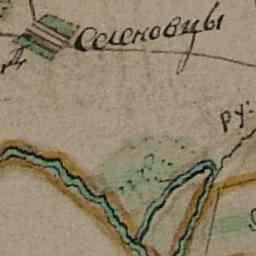 Селеновцы
РУ: